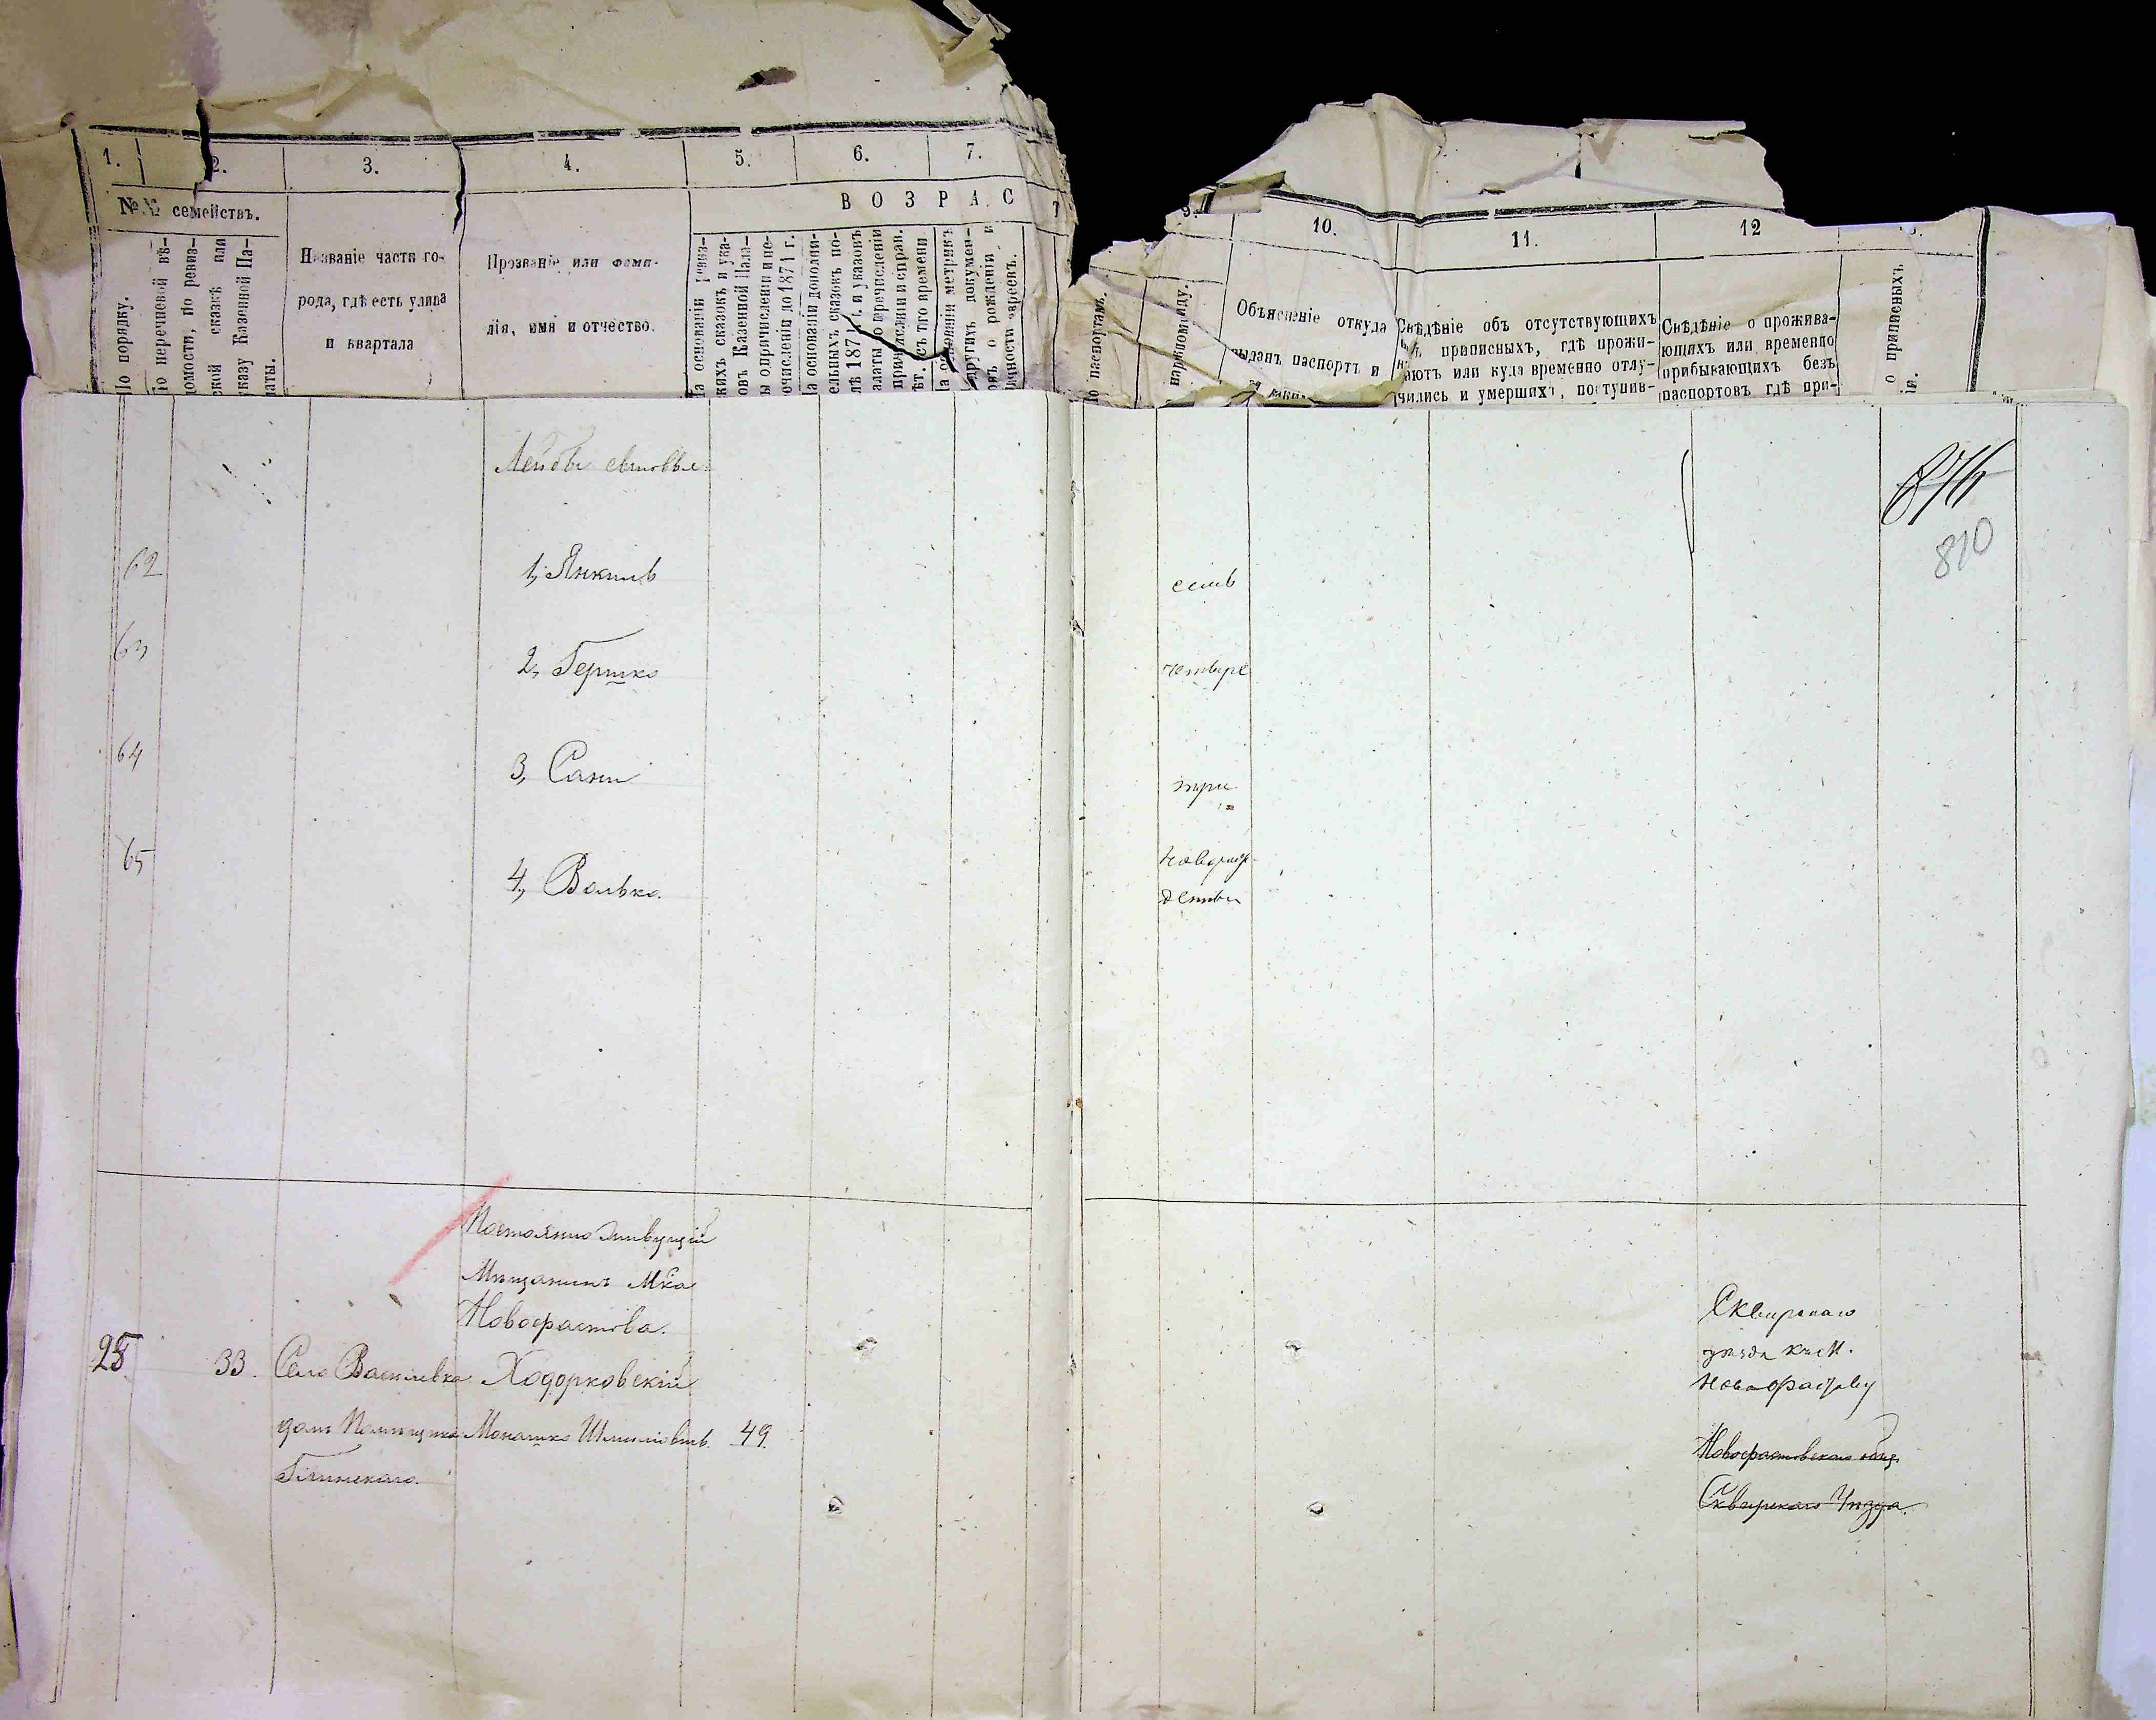 1.
2.
3.
4.
5.
6.
7.
10.
11.
12
№№ семействъ.
ВОЗРАС
По порядку.
По перечневой вѣ-
домости, по ревиз-
ской сказкѣ или
указу Казенной Па-
латы.
Названіе части го-
рода, гдѣ есть улица
и квартала
Прозваніе или фами-
лія, имя и отчество.
На основаніи ревиз-
скихъ сказокъ и ука-
овъ Казенной Пала-
ы о причисленіи и пе-
ечисленіи до 1871 г.
На основаніи дополни-
ельныхъ сказокъ по-
лѣ 1871 г. и указовъ
алаты о перечисленіи
причисленіи и справ.
другихъ докумен-
овъ о рожденіи и
личности евреевъ.
по паспортамъ.
наружному виду.
Объясненіе откуда
выданъ паспортъ и
Свѣдѣніе объ отсутствующихъ
приписныхъ, гдѣ прожи-
ваютъ или куда временно отлу-
чились и умершихъ, поступив-
Свѣдѣніе о прожива-
ющихъ или временно
прибывающихъ безъ
паспортовъ гдѣ при-
о приписныхъ
Лейбы сыновья:
810
62
1, Янкель
семь
63
2, Гершко
четыре
64
3, Сани
три
65
4, Волько.
новорож-
денный
Постоянно живущій
Мѣщанинъ Мка
Новофастова.
25
33.
Село Василевка
Ходорковскій
домъ Помѣщика
Монашко Шмулiовъ.
49.
Сквирскаго
уѣзда
Новофастовскаго общ.
Сквирскаго Уѣзда.